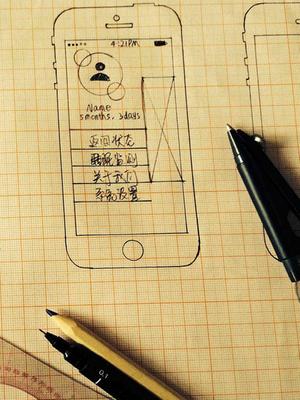 4:21PM
Name
5 months, 3 days
状态
睡眠监测
关于我们
系统设置
0.1